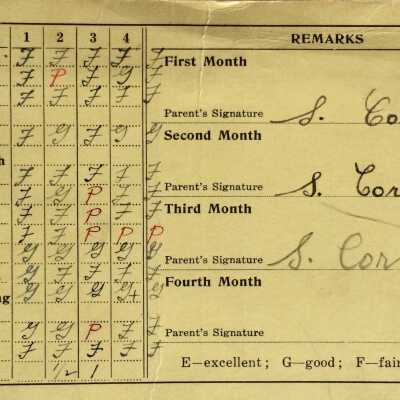 1 2 3 4 REMARKS
F F F F F First Month
F P F G F
F F F F F
Parent's Signature S. Co
F G F G G Second Month
h
F F F F F
F G P F F Parent's Signature S. Cor
F F P F F Third Month
F F P P P
G G G G G
Parent's Signature S. Cor
G F F F F
G G G G+ G Fourth Month
ng
G G P F F Parent's Signature
F F F F F
E—excellent; G—good; F—fair
1/2 1